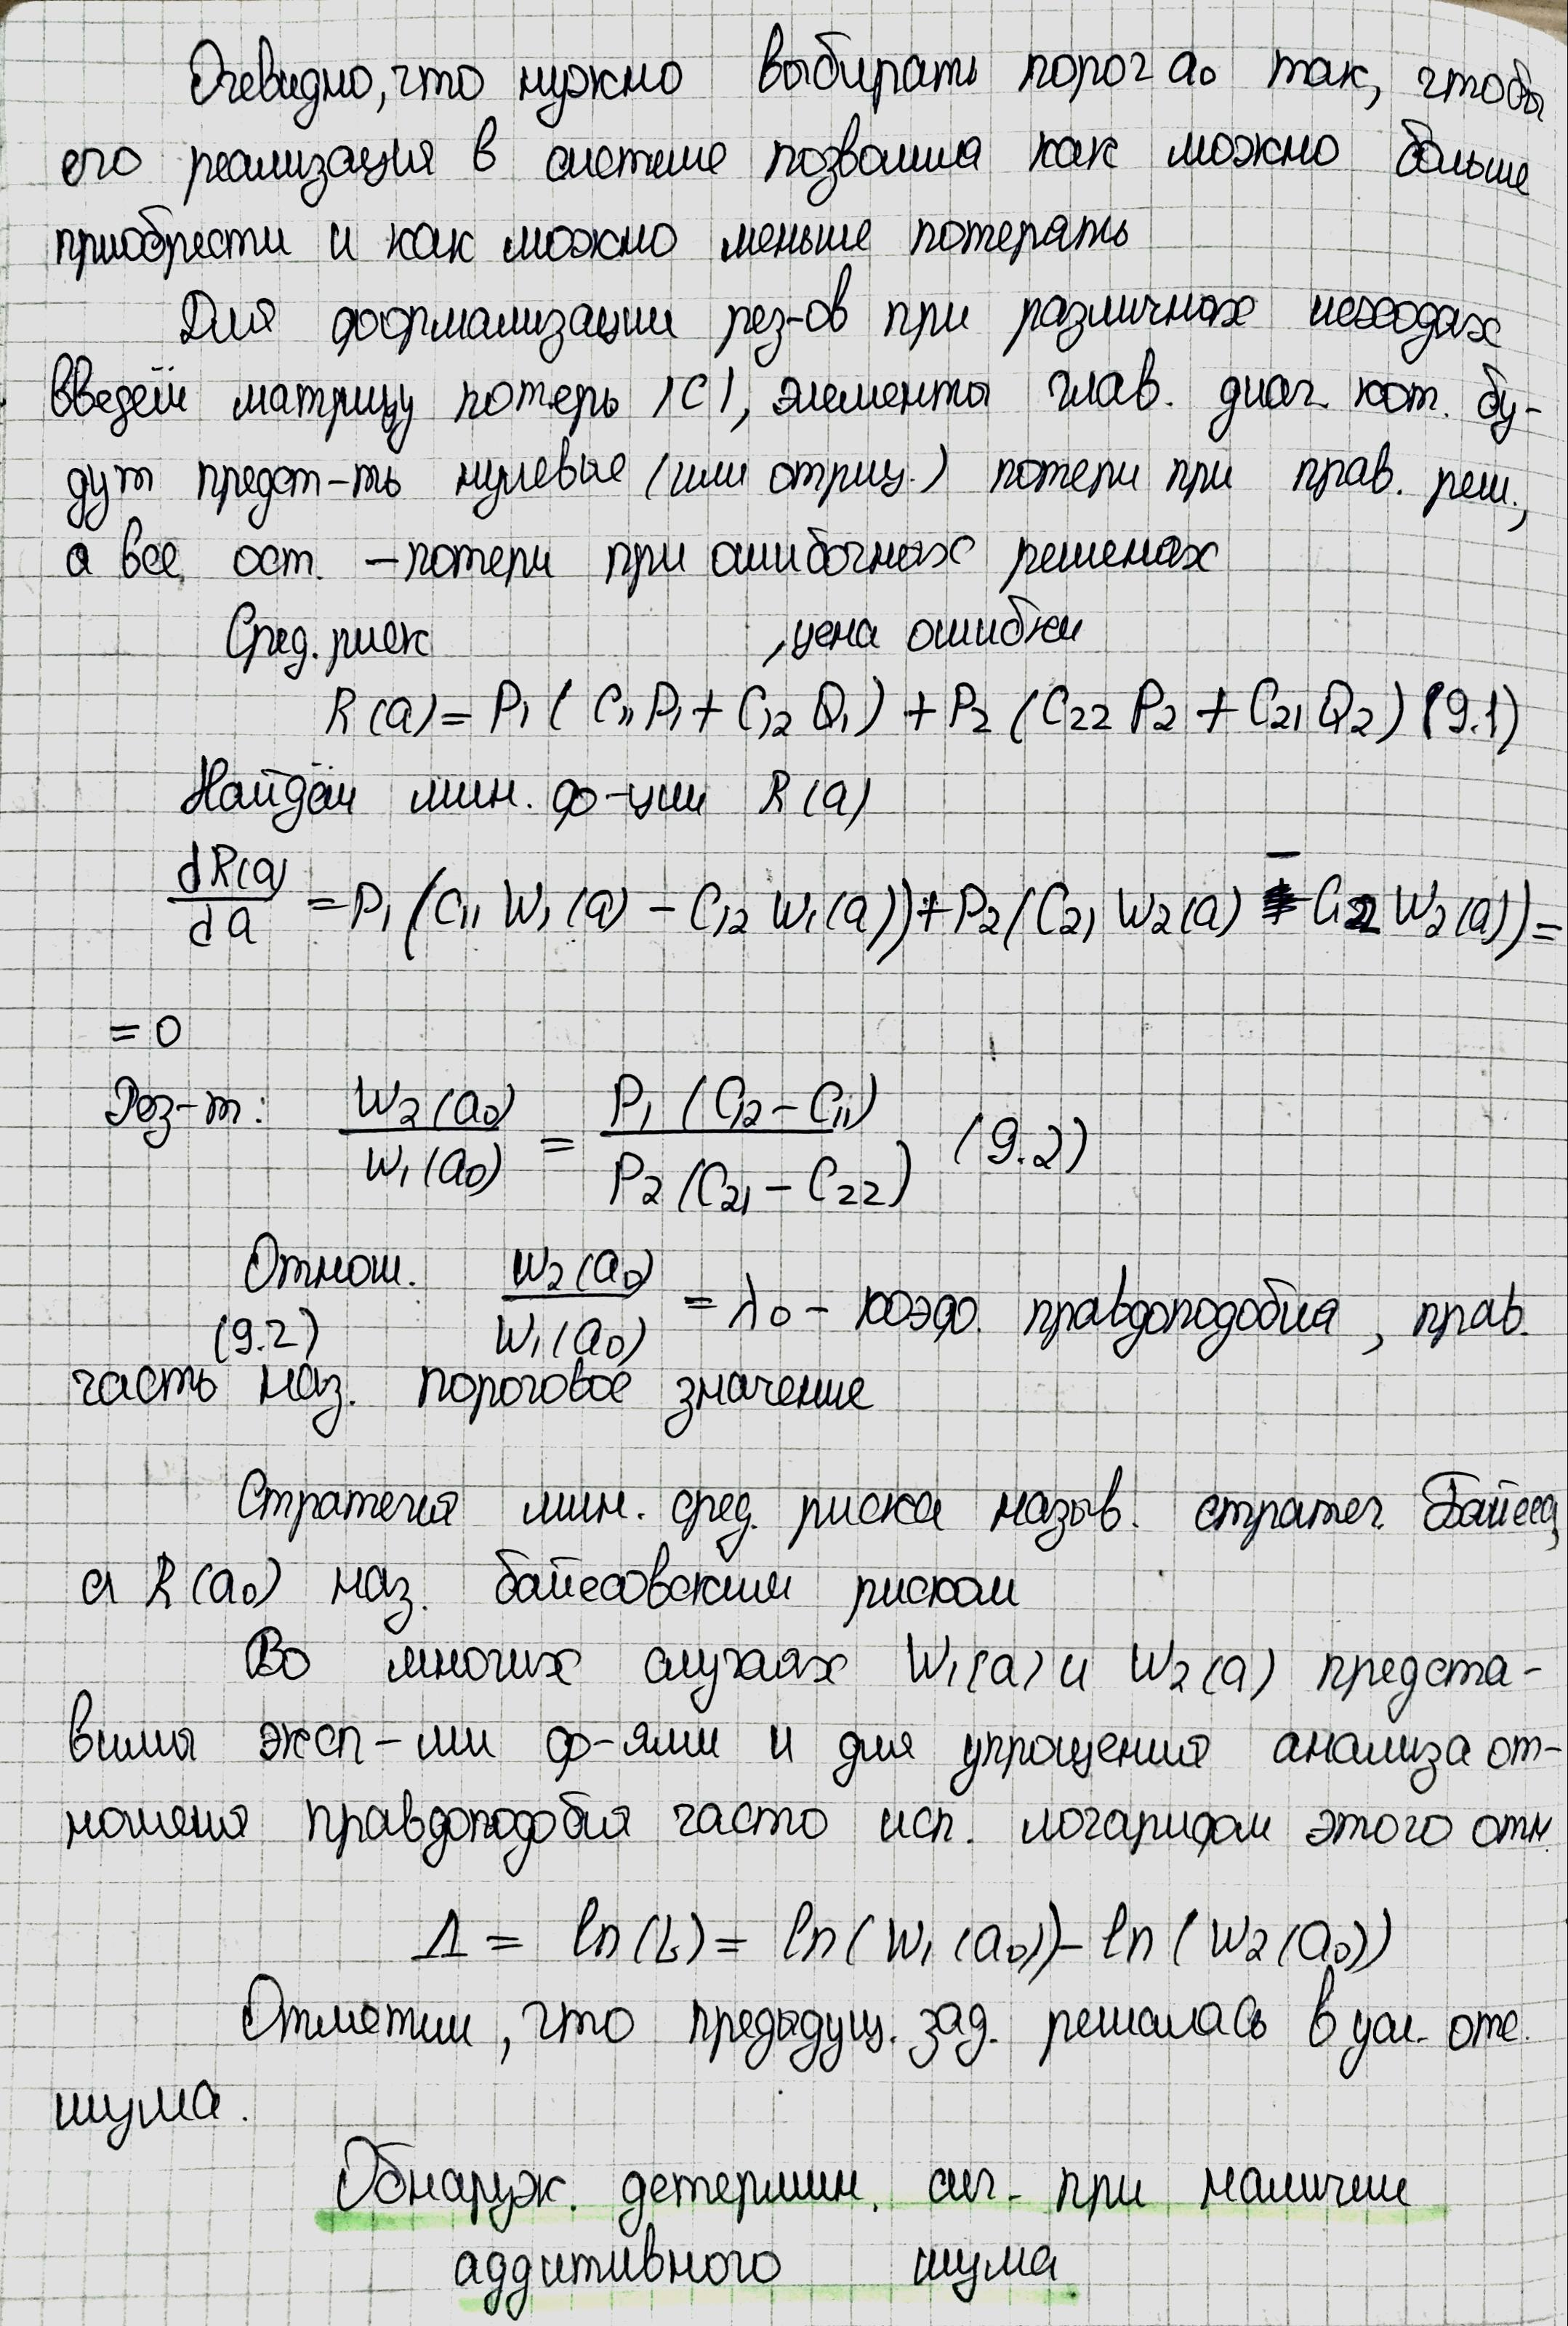 Очевидно, что нужно выбирать порог a₀ так, чтобы
его реализация в системе позволила как можно больше
приобрести и как можно меньше потерять
Для формализации рез-ов при различных исходах
введём матрицу потерь |C|, элементы глав. диаг. кот. бу-
дут предст-ть нулевые (или отриц.) потери при прав. реш.,
а все ост. – потери при ошибочных решенах
Сред. риск , цена ошибки
R(a) = P₁ (C₁₁ P₁ + C₁₂ Q₁) + P₂ (C₂₂ P₂ + C₂₁ Q₂) (9.1)
Найдём мин. ф-ции R(a)
dR(a)/da = P₁ (C₁₁ W₁(a) – C₁₂ W₁(a)) + P₂ (C₂₁ W₂(a) – C₂₂ W₂(a)) =
= 0
Рез-т: W₂(a₀)/W₁(a₀) = P₁ (C₁₂ – C₁₁)/P₂ (C₂₁ – C₂₂) (9.2)
Отнош. W₂(a₀)/W₁(a₀) = λ₀ – коэф. правдоподобия, прав.
(9.2)
часть наз. пороговое значение
Стратегия мин. сред. риска назыв. стратег. Байеса,
а R(a₀) наз. байесовским риском
Во многих случаях W₁(a) и W₂(a) предста-
вимы эксп-ми ф-ями и для упрощения анализа от-
ношеня правдоподобия часто исп. логарифм этого отн.
Λ = ln(L) = ln(W₁(a₀)) – ln(W₂(a₀))
Отметим, что предыдущ. зад. решалась в усл. отс.
шума.
Обнаруж. детермин. сиг. при наличие
аддитивного шума